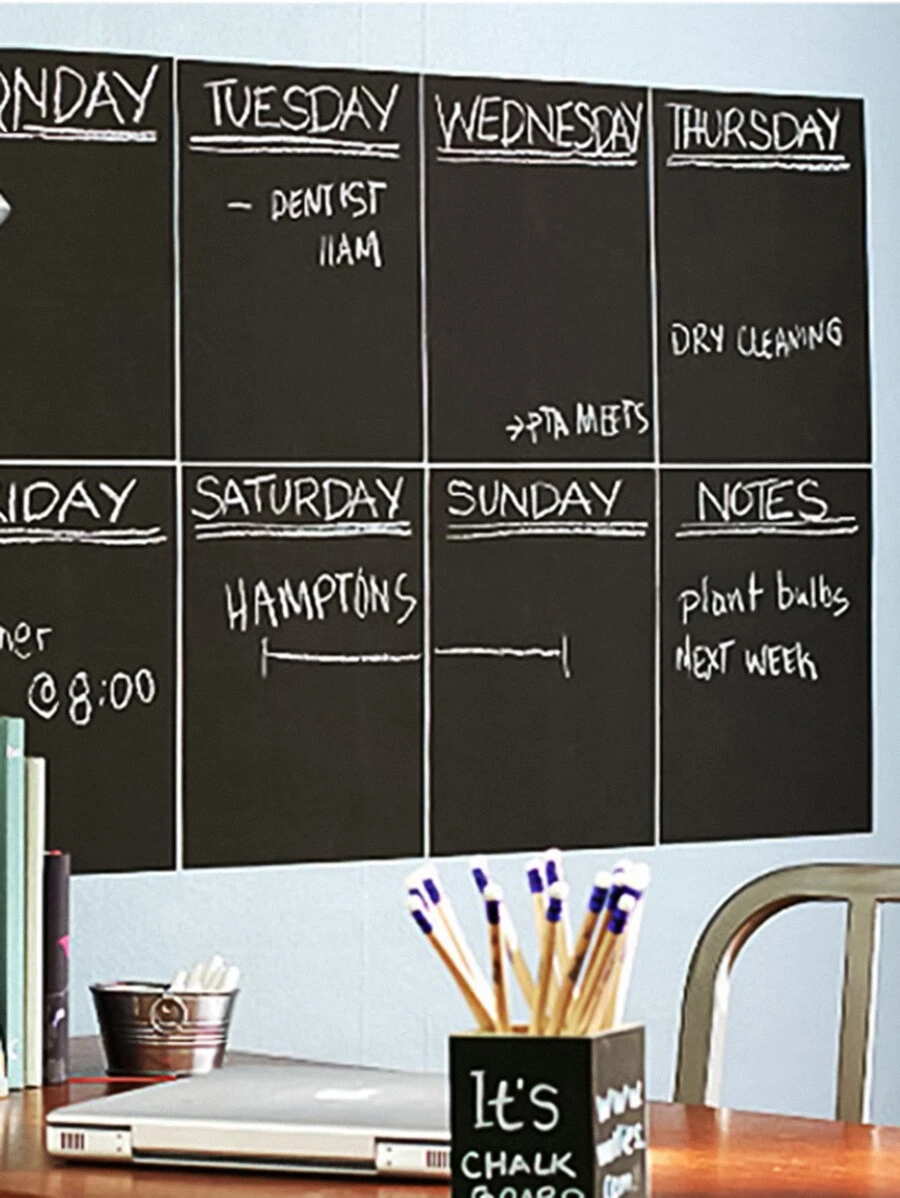 ONDAY
TUESDAY
- DENTIST
11AM
WEDNESDAY
→PTA MEETS
THURSDAY
DRY CLEANING
RIDAY
ner
@8:00
SATURDAY
HAMPTONS
SUNDAY
NOTES
plant bulbs
NEXT WEEK
It's
CHALK
BOARD
www.